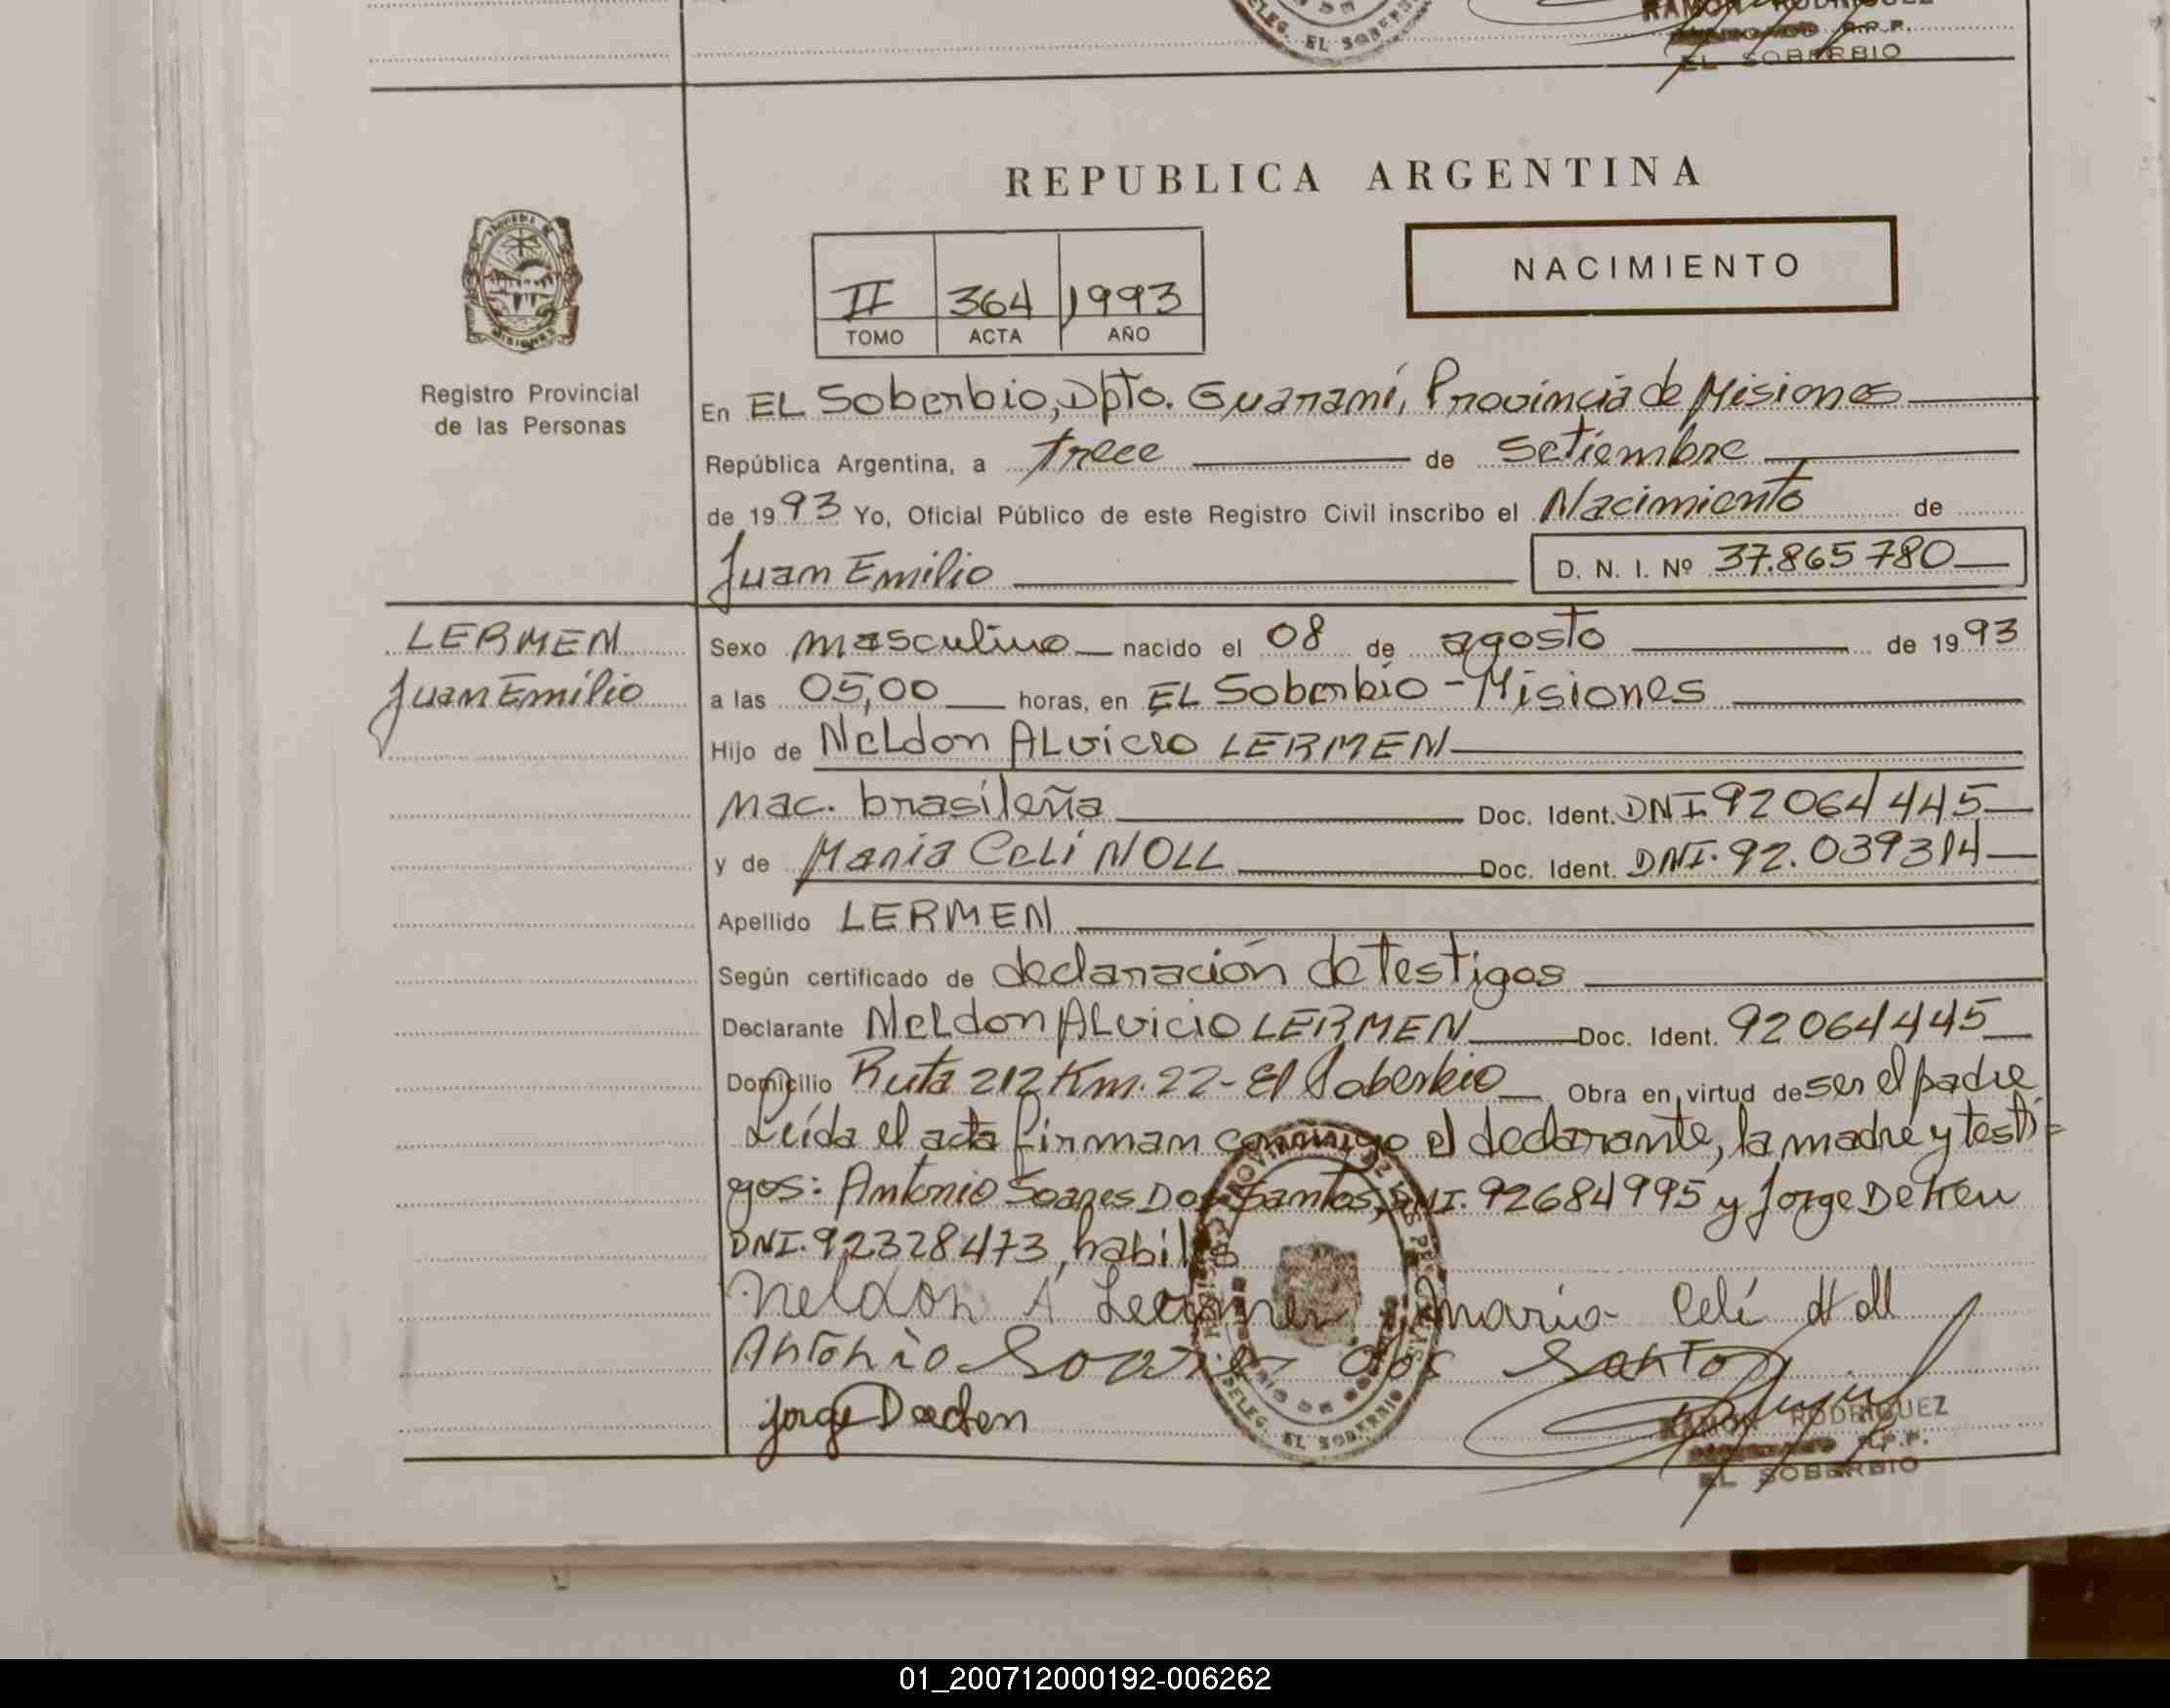 RAMON RODRIGUEZ
R.P.P.
EL SOBERBIO
DELEG. EL SOBERBIO
REPUBLICA ARGENTINA
NACIMIENTO
II 364 1993
TOMO ACTA AÑO
Registro Provincial
de las Personas
En EL Soberbio, Dpto. Guaraní, Provincia de Misiones
República Argentina, a trece de Setiembre
de 1993 Yo, Oficial Público de este Registro Civil inscribo el Nacimiento de
Juan Emilio D. N. I. Nº 37.865780
LERMEN
Juan Emilio
Sexo masculino nacido el 08 de agosto de 1993
a las 05,00 horas, en EL Soberbio - Misiones
Hijo de Neldon ALvicio LERMEN
nac. brasileña Doc. Ident. DNI 92064445
y de Maria CeLi NOLL Doc. Ident. DNI. 92.039314
Apellido LERMEN
Según certificado de declaración de Testigos
Declarante NeLdon ALvicio LERMEN Doc. Ident. 92064445
Domicilio Ruta 212 Km. 22 - El Soberbio Obra en virtud de ser el padre
Leída el acta firman conmigo el declarante, la madre y testi=
gos: Antonio Soares Dos Santos, DNI. 92684995 y Jorge
DNI. 92328473, habiles
neldon A Lermen maria Celi Noll
Antonio Soares dos Santos
jorge
RAMON RODRIGUEZ
R.P.P.
EL SOBERBIO
DELEG. EL SOBERBIO
01_200712000192-006262